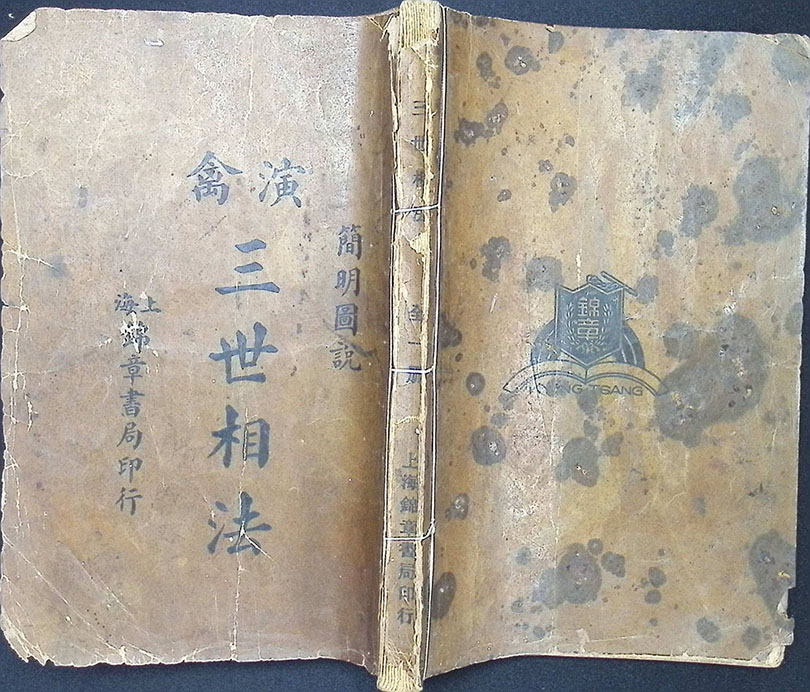 簡明圖說
演禽
三世相法
上海
錦章書局印行
三世相法
全一册
上海錦章書局印行
錦章
TSANG